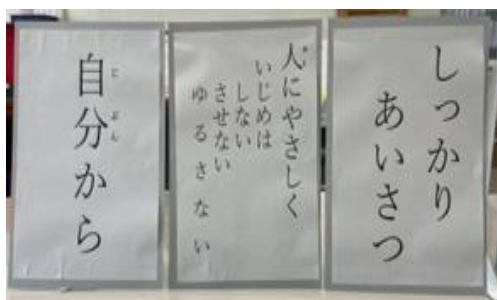 しっかり
あいさつ
人にやさしく
いじめは
しない
させない
ゆるさない
自分から